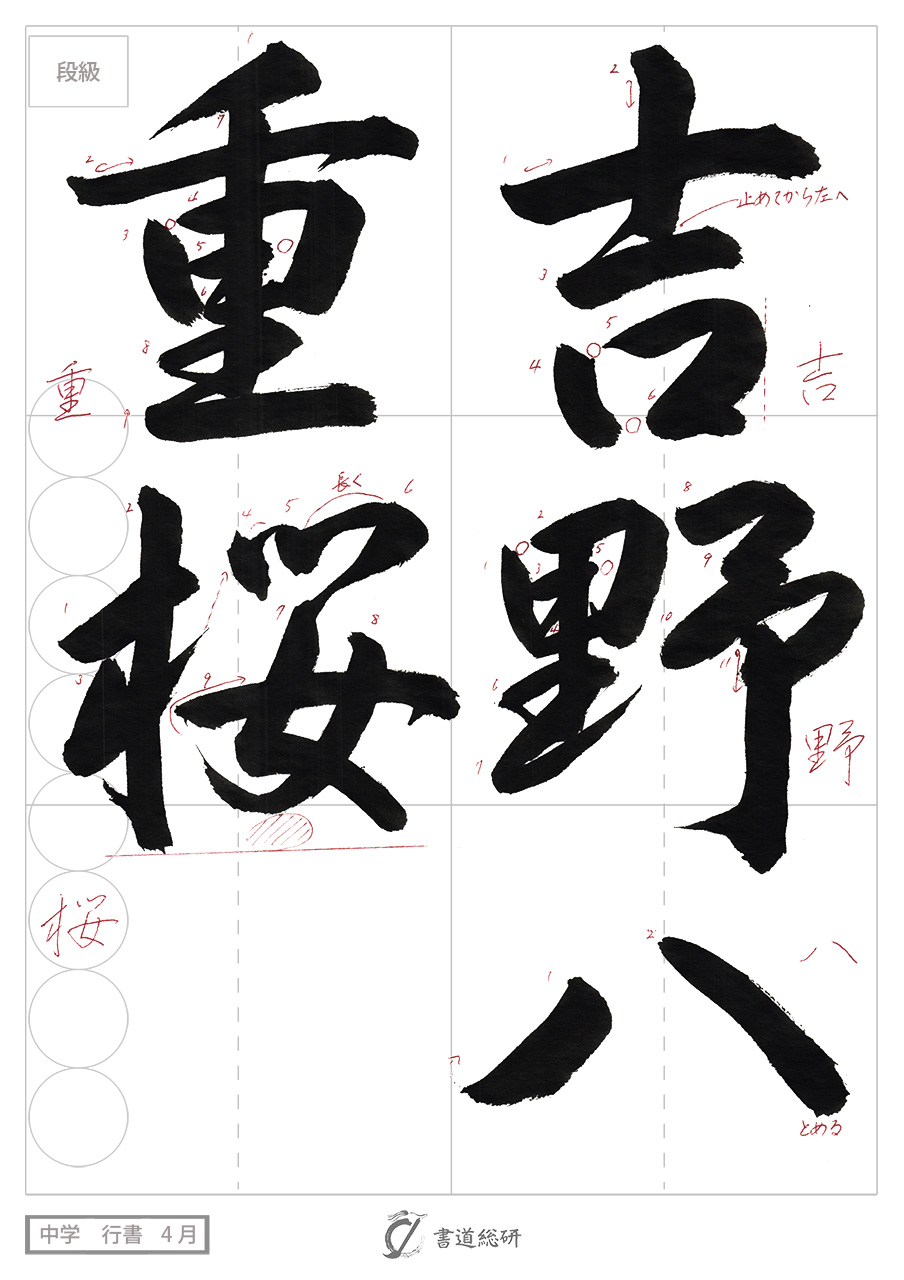 吉野八
重桜
段級
止めてから左へ
吉
野
八
とめる
重
長く
桜
中学 行書 4月
書道総研